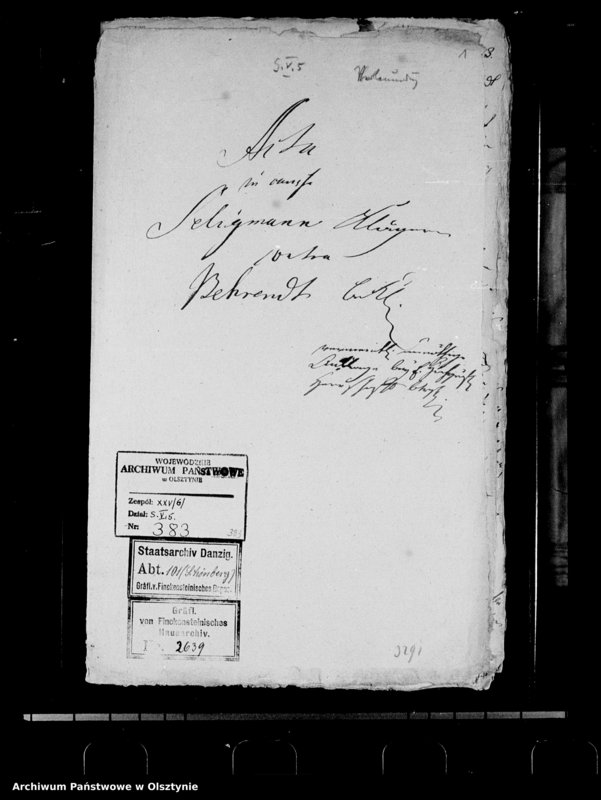 1
S. V. 5
Acta
in causa
Seligmann Klägerin
contra
Behrendt Bekl.
WOJEWÓDZKIE
ARCHIWUM PAŃSTWOWE
w OLSZTYNIE
Zespół: XXV/6/
Dział: S.V.5.
Nr: 383
Staatsarchiv Danzig.
Abt. 101/Schönberg/
Gräfl. v. Finckensteinisches Depos.
Gräfl.
von Finckensteinisches
Hausarchiv.
2639
3291
Archiwum Państwowe w Olsztynie